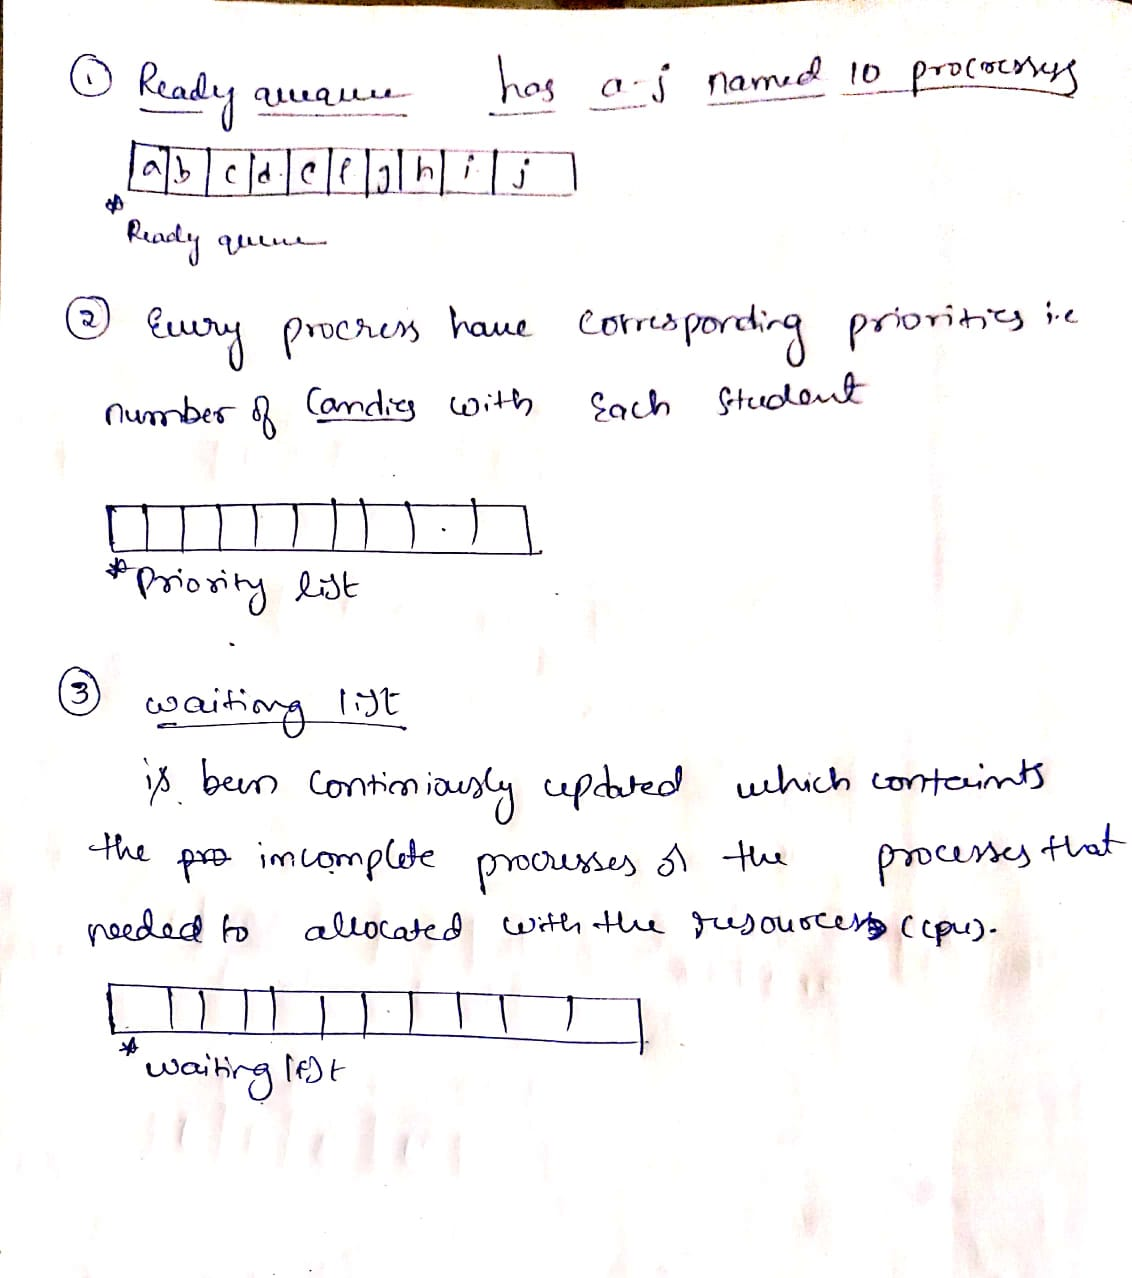 ① Ready queue has a-j named 10 processes
a b c d e f g h i j
* Ready queue
② Every process have corresponding priorities i.e
number of Candies with Each Student
* Priority list
③ waiting list
is been continiously updated which containts
the pro incomplete processes of the processes that
needed to allocated with the resources (cpu).
* waiting list